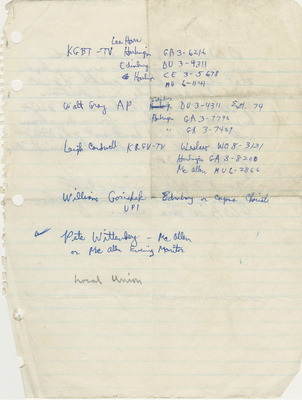 Lee Horn
KGBT-TV Harlingen GA 3-6216
Edinburg DU 3-4311
Harlingen CE 3-5678
MU 6-1141
Walt Gray AP DU 3-4311 Ext. 74
Harlingen GA 3-7792
" GA 3-7429
Leigh Cardwell KRGV-TV Weslaco WO 8-3131
Harlingen GA 3-8200
McAllen MU 6-2866
William - Edinburg or Corpus Christi
UPI
✓ Pete Wittenberg - McAllen
or McAllen Evening Monitor
Local Union